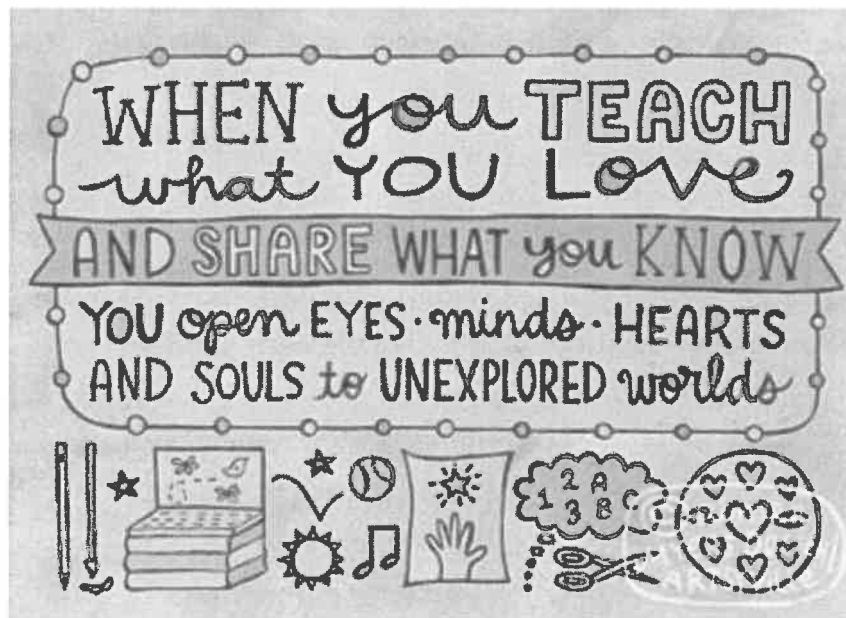 WHEN you TEACH
what YOU LOVE
AND SHARE WHAT you KNOW
YOU open EYES · minds · HEARTS
AND SOULS to UNEXPLORED worlds
1 2 A
3 B C